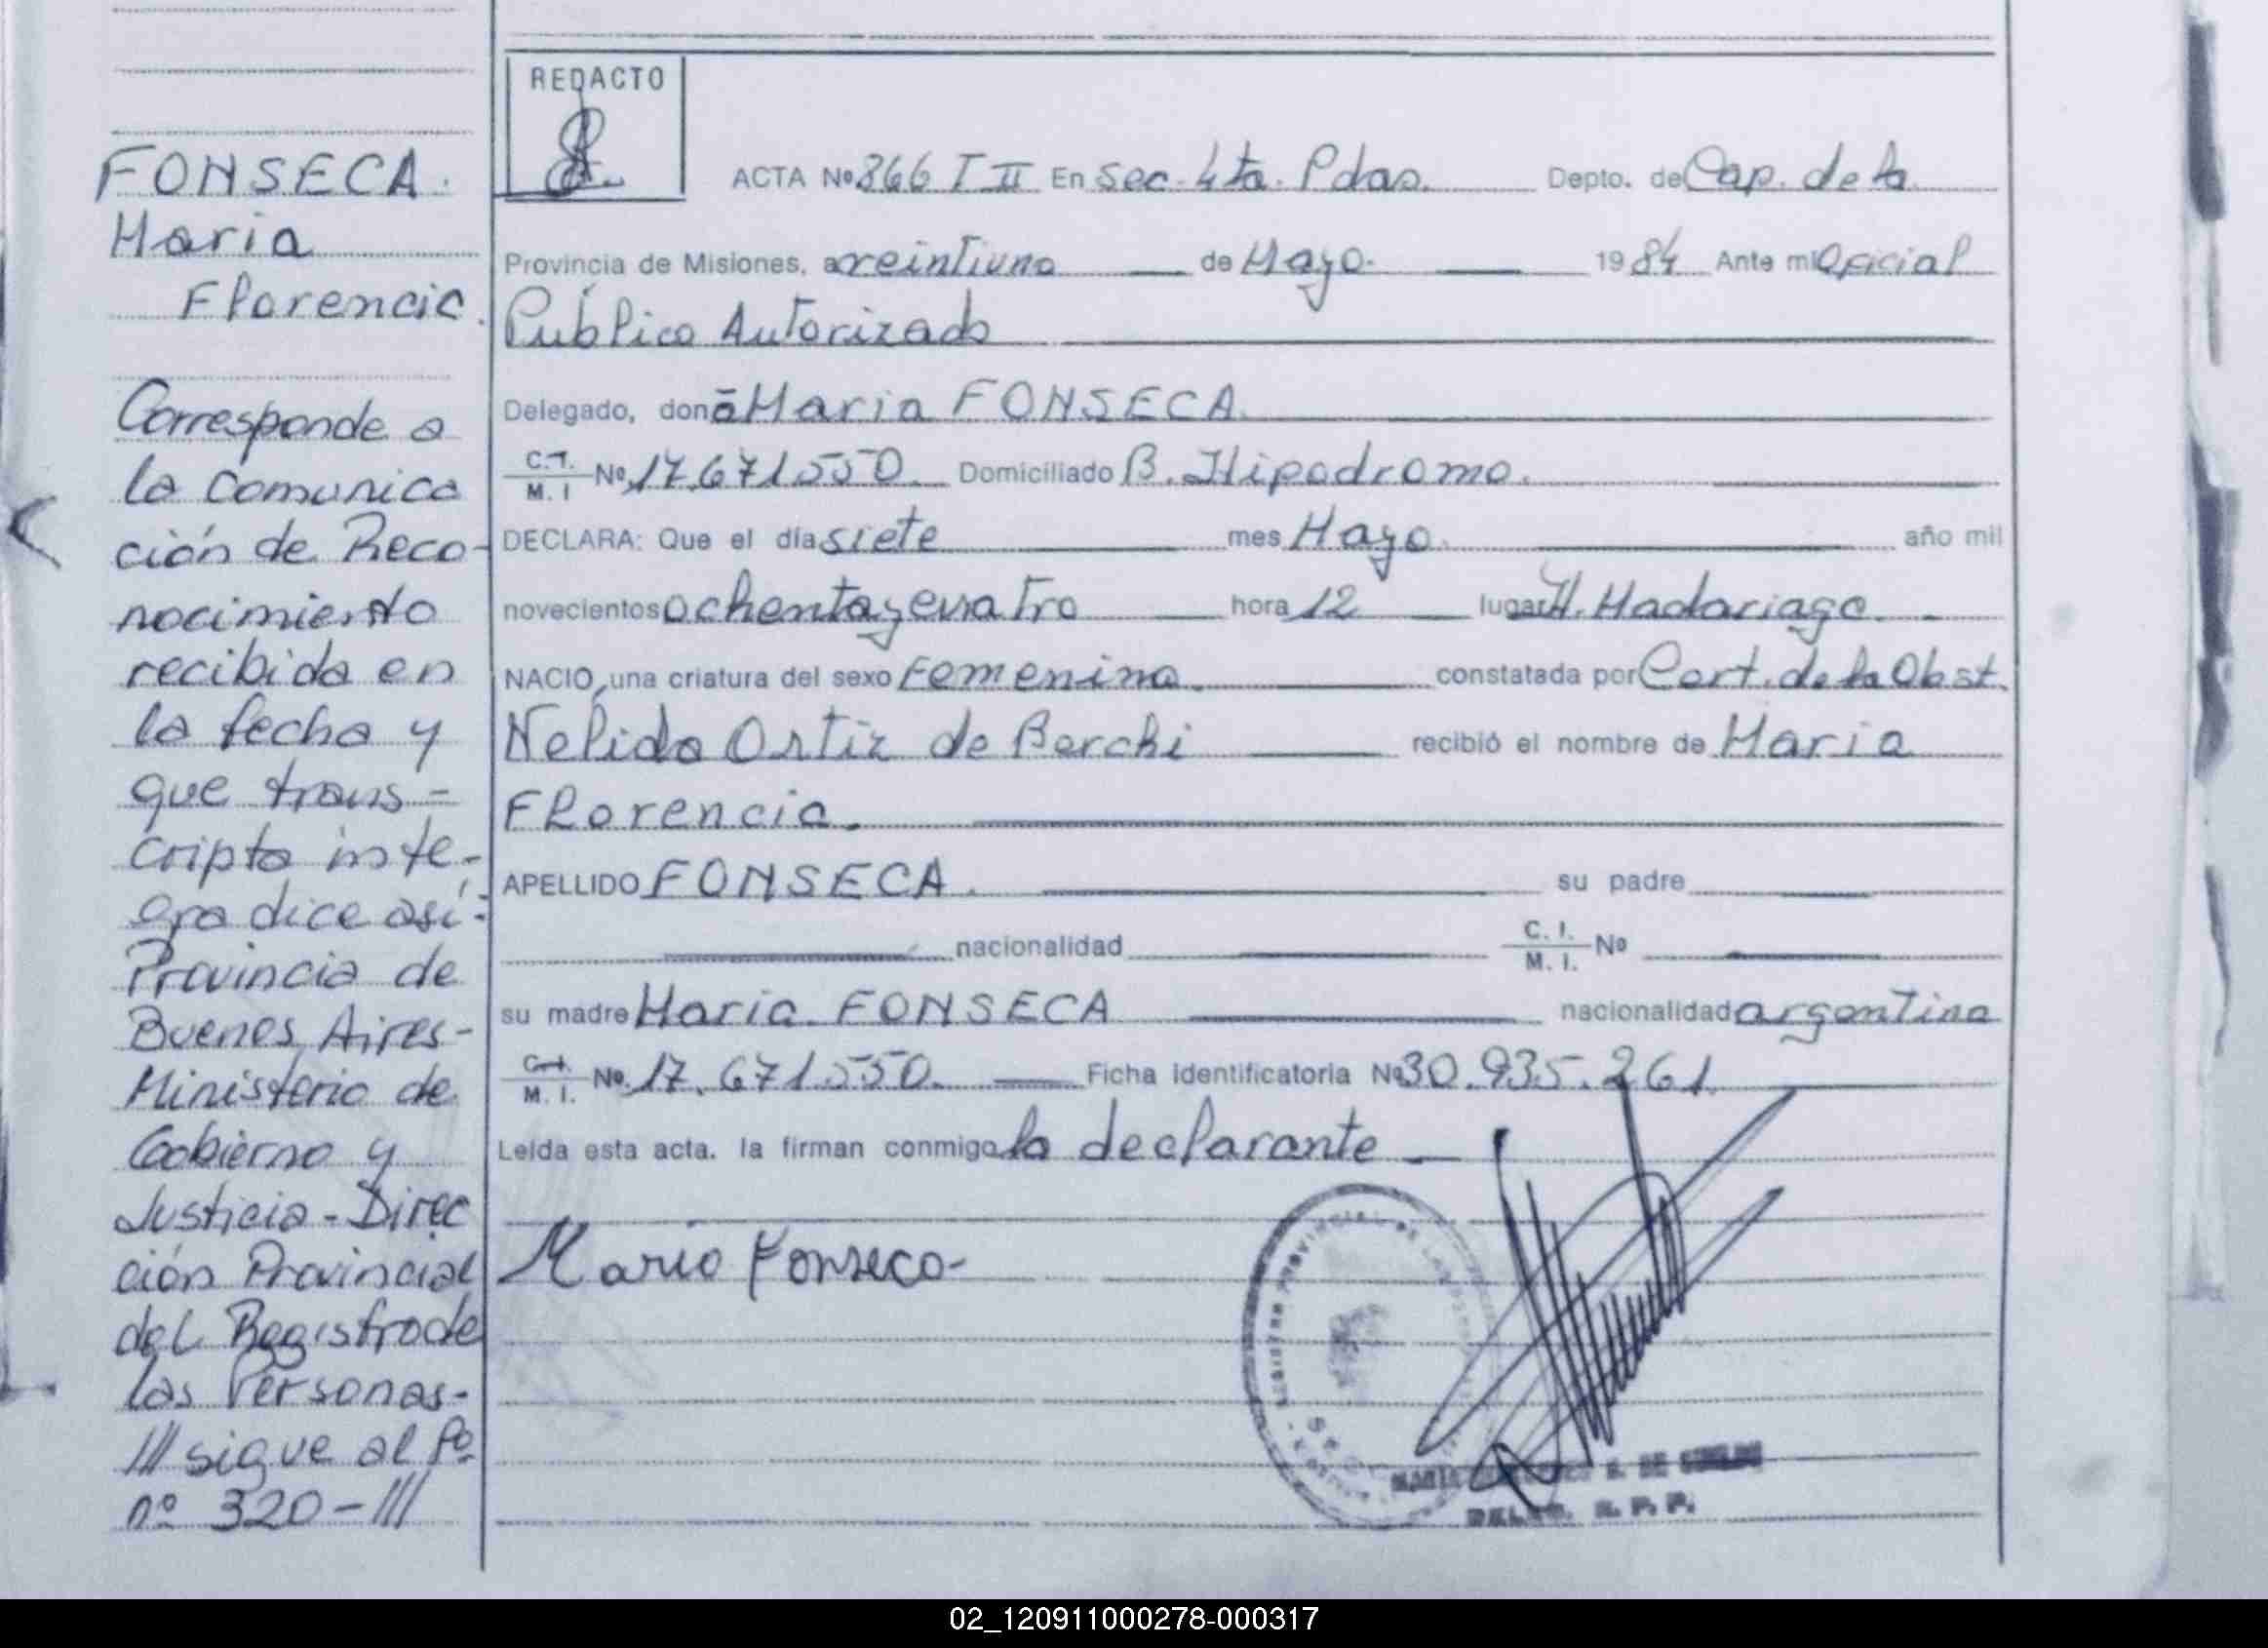 FONSECA.
Maria
Florencia.
Corresponde a
la Comunica
ción de Reco-
nocimiento
recibida en
la fecha y
que trans-
cripta inte-
gra dice así:
Provincia de
Buenos Aires-
Ministerio de
Gobierno y
Justicia-Direc
ción Provincial
del Registro de
las Personas-
/// sigue al fº
nº 320-///
REDACTO
ACTA Nº 866 T II En Sec. 4ta. Pdas. Depto. de Cap. de la
Provincia de Misiones, a veintiuno de Mayo. 1984 Ante mi Oficial
Público Autorizado
Delegado, donã Maria FONSECA.
C.I. / M. I Nº 17.671.550. Domiciliado B. Hipodromo.
DECLARA: Que el día siete mes Mayo. año mil
novecientos ochenta y cuatro hora 12 lugar H. Madariaga.
NACIO, una criatura del sexo Femenino. constatada por Cert. de la Obst.
Nelida Ortiz de Berchi recibió el nombre de Maria
Florencia.
APELLIDO FONSECA. su padre
nacionalidad C. I. / M. I. Nº
su madre Maria FONSECA nacionalidad argentina
C.I. / M. I. Nº 17.671.550. Ficha Identificatoria Nº 30.935.261.
Leída esta acta. la firman conmigo la declarante
Maria Fonseca
DELEG. R. P. P.
02_120911000278-000317